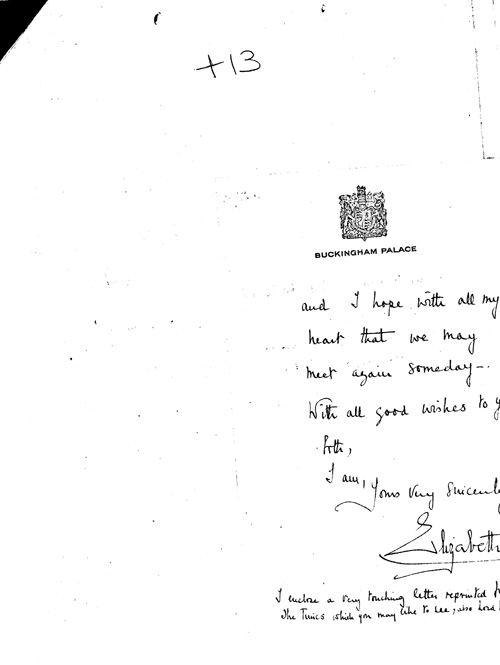 +13
BUCKINGHAM PALACE
and I hope with all my
heart that we may
meet again someday -.
With all good wishes to
both,
I am,
Yours very sincerely
Elizabeth
I enclose a very touching letter reprinted
The Times which you may like to see, also Lord